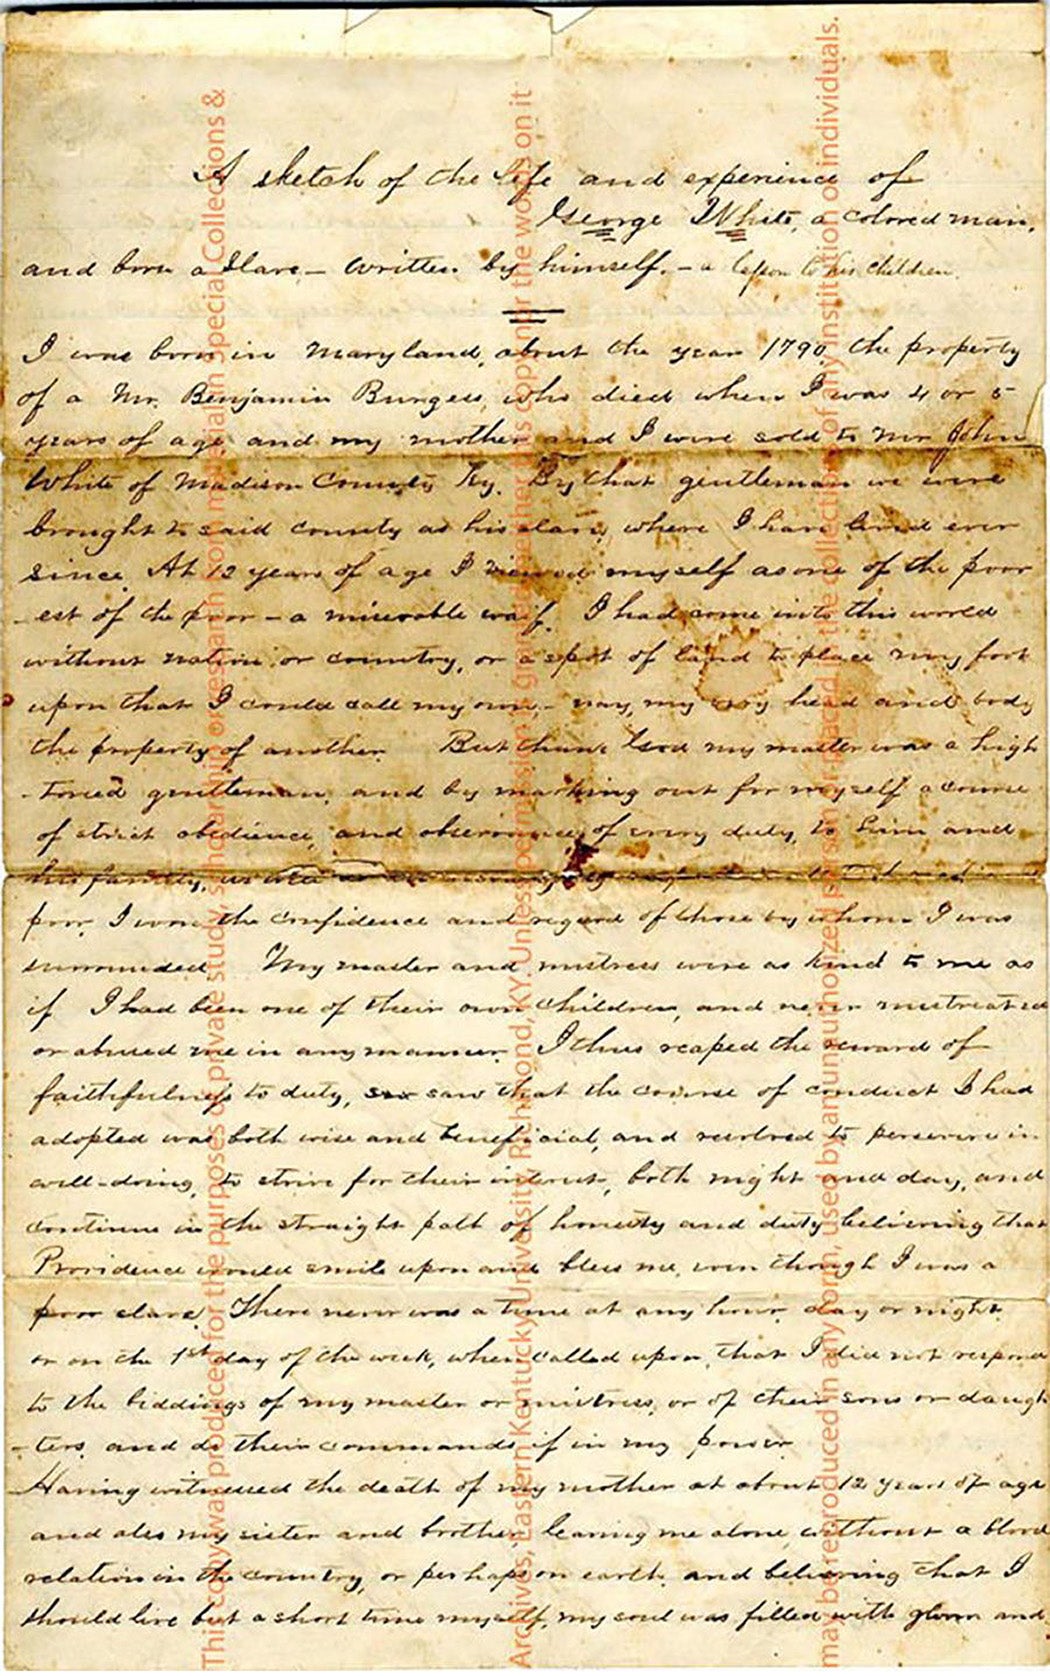 A sketch of the life and experience of
George White, a colored man,
and born a Slave – written by himself. – a lesson to his children.
I was born in Maryland, about the year 1790, the property
of a Mr. Benjamin Burgess, who died when I was 4 or 5
years of age, and my mother and I were sold to Mr John
White of Madison County Ky. By that gentleman we were
brought to said county as his slaves, where I have lived ever
since. At 12 years of age I viewed myself as one of the poor
-est of the poor – a miserable waif. I had come into this world
without nation, or country, or a spot of land to place my foot
upon that I could call my own, – nay, my very head and body
the property of another. But thank God my master was a high
-toned gentleman, and by marking out for myself a course
of strict obedience, and observance of every duty, to him and
his family,
poor, I won the confidence and regard of those by whom I was
surrounded. My master and mistress were as kind to me as
if I had been one of their own children, and never mistreated
or abused me in any manner. I thus reaped the reward of
faithfulness to duty, saw that the course of conduct I had
adopted was both wise and beneficial, and resolved to persevere in
well-doing, to strive for their interest, both night and day, and
continue in the straight path of honesty and duty believing that
Providence would smile upon and bless me, even though I was a
poor slave. There never was a time at any hour, day or night,
or on the 1st day of the week, when called upon, that I did not respond
to the biddings of my master or mistress, or of their sons or daugh
-ters, and do their commands if in my power.
Having witnessed the death of my mother at about 12 years of age
and also my sister and brother, leaving me alone, without a blood
relation in the country, or perhaps on earth, and believing that I
should live but a short time myself, my soul was filled with gloom and
This copy was produced for the purposes of private study, scholarship, or research from material in Special Collections &
Archives, Eastern Kentucky University, Richmond, KY. Unless permission is granted, neither this copy nor the words on it
may be reproduced in any form, used by an unauthorized person, nor placed in the collection of any institution or individuals.